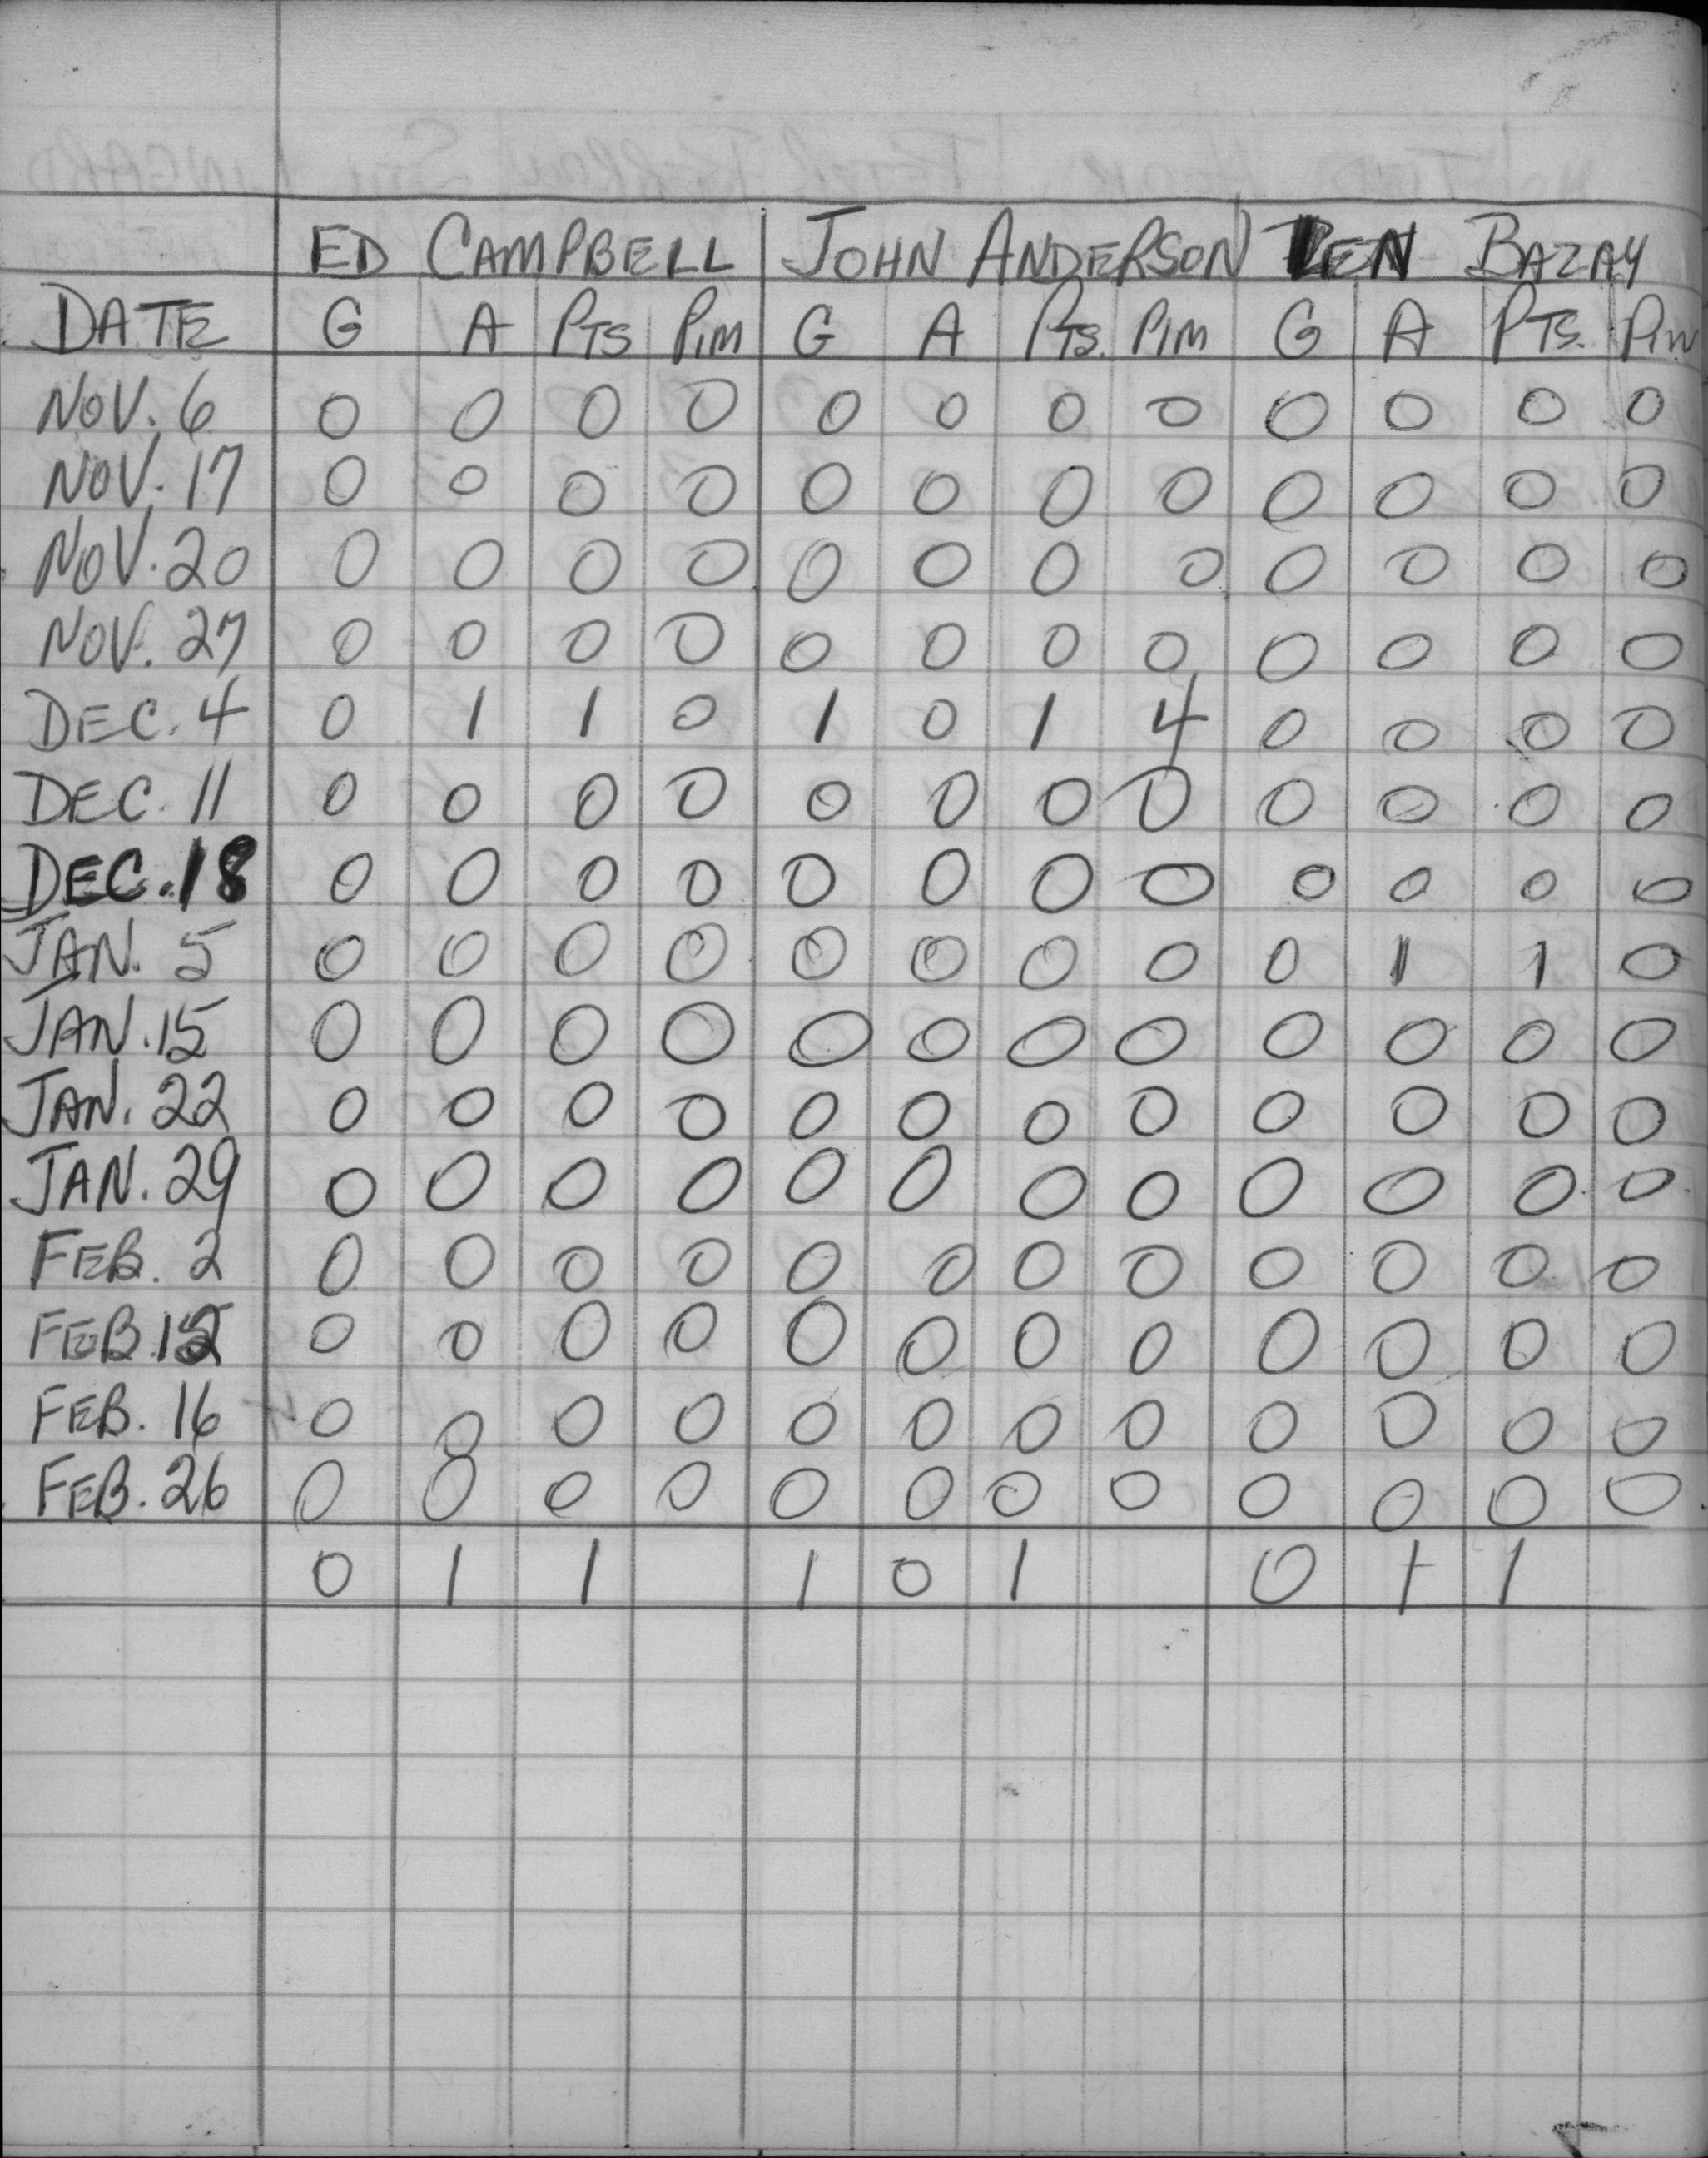 ED CAMPBELL JOHN ANDERSON KEN BAZAY
DATE G A PTS PIM G A PTS. PIM G A PTS. PIM
NOV. 6 0 0 0 0 0 0 0 0 0 0 0 0
NOV. 17 0 0 0 0 0 0 0 0 0 0 0 0
NOV. 20 0 0 0 0 0 0 0 0 0 0 0 0
NOV. 27 0 0 0 0 0 0 0 0 0 0 0 0
DEC. 4 0 1 1 0 1 0 1 4 0 0 0 0
DEC. 11 0 0 0 0 0 0 0 0 0 0 0 0
DEC. 18 0 0 0 0 0 0 0 0 0 0 0 0
JAN. 5 0 0 0 0 0 0 0 0 0 1 1 0
JAN. 15 0 0 0 0 0 0 0 0 0 0 0 0
JAN. 22 0 0 0 0 0 0 0 0 0 0 0 0
JAN. 29 0 0 0 0 0 0 0 0 0 0 0 0
FEB. 2 0 0 0 0 0 0 0 0 0 0 0 0
FEB. 12 0 0 0 0 0 0 0 0 0 0 0 0
FEB. 16 0 0 0 0 0 0 0 0 0 0 0 0
FEB. 26 0 0 0 0 0 0 0 0 0 0 0 0
0 1 1 1 0 1 0 1 1